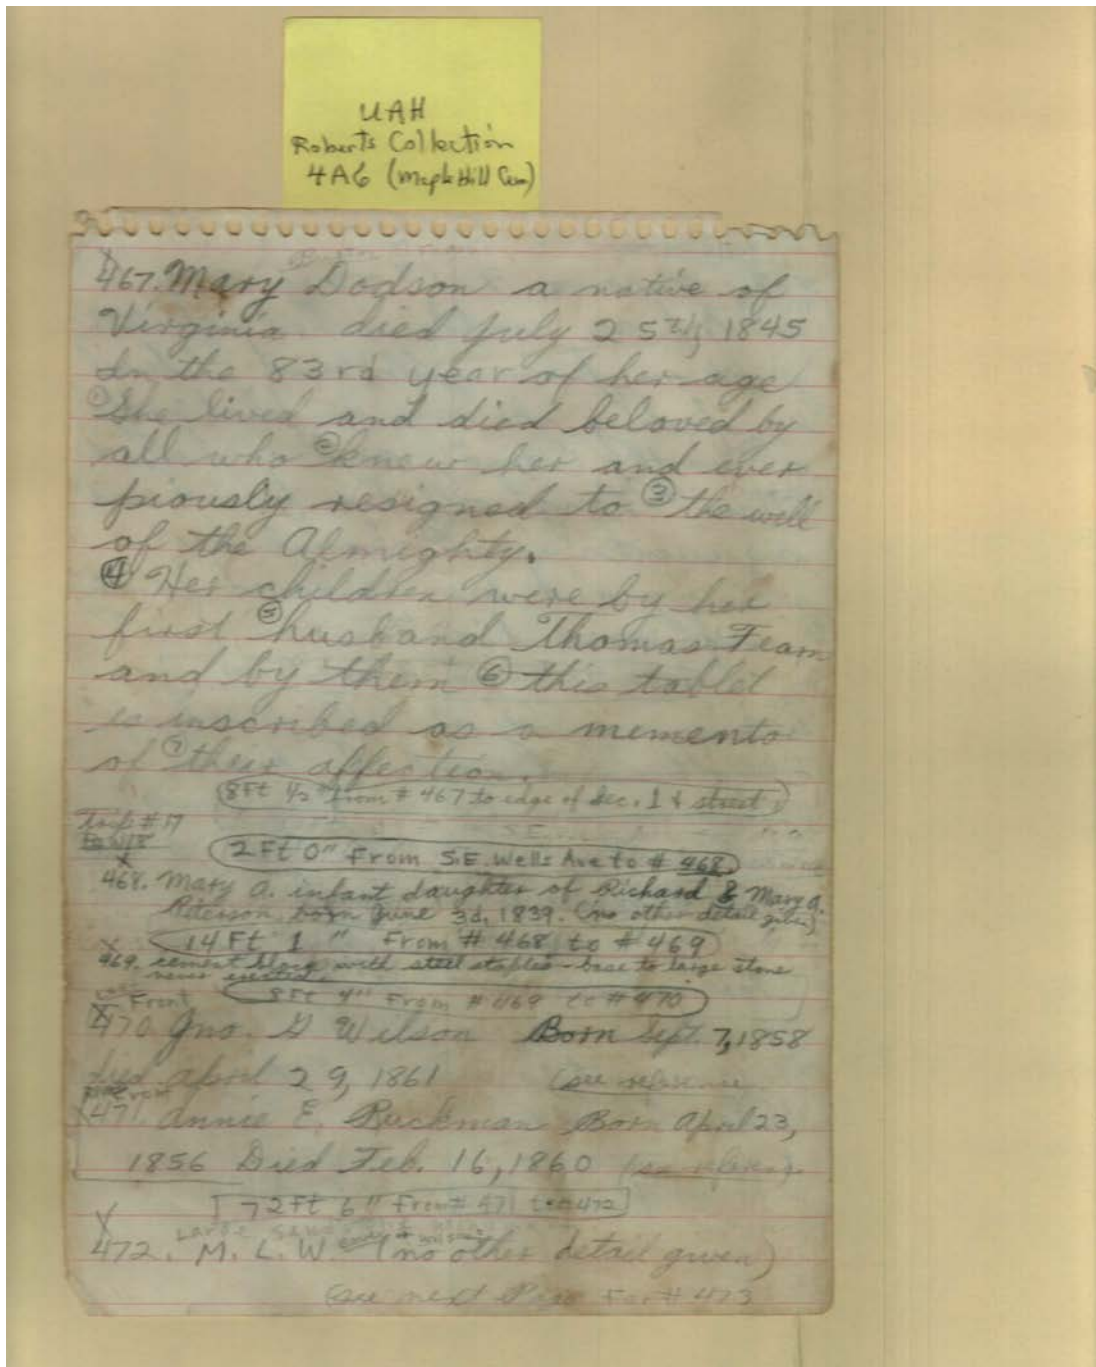 UAH
Roberts Collection
4A6 (Maple Hill Cem)
467. Mary Dodson a native of
Virginia died July 25th, 1845
In the 83rd year of her age
① She lived and died beloved by
all who ② knew her and ever
piously resigned to ③ the will
of the Almighty.
④ Her children were by her
first ⑤ husband Thomas Fearn
and by them ⑥ this tablet
is inscribed as a memento
of ⑦ their affection.
8Ft 1/2" From # 467 to edge of Sec. 1 & street
Trip # 17
X
2 Ft 0" From S.E. Wells Ave to # 468
468. Mary A. infant daughter of Richard & Mary A.
Peterson, born June 3d, 1839. (no other detail given)
14 Ft 1" From # 468 to # 469
X
469. cement slab with steel staples - base to large stone
never erected.
8Ft 4" From # 469 to # 470
Front
X
470 Jno. G Wilson Born Sept. 7, 1858
died April 29, 1861 (see reference
Front
471. Annie E. Ruckman Born April 23,
1856 Died Feb. 16, 1860 (see reference
72Ft 6" From # 471 to # 472
X
Large
472. M. L. W. (no other detail given)
(see next Page For # 473